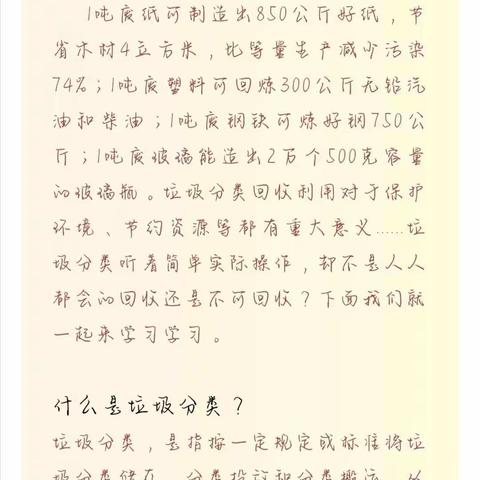 1吨废纸可制造出850公斤好纸，节
省木材4立方米，比等量生产减少污染
74%；1吨废塑料可回炼300公斤无铅汽
油和柴油；1吨废钢铁可炼好钢750公
斤；1吨废玻璃能造出2万个500克容量
的玻璃瓶。垃圾分类回收利用对于保护
环境、节约资源等都有重大意义……垃
圾分类听着简单实际操作，却不是人人
都会的回收还是不可回收？下面我们就
一起来学习学习。
什么是垃圾分类？
垃圾分类，是指按一定规定或标准将垃
圾分类储存、分类投放和分类搬运，从